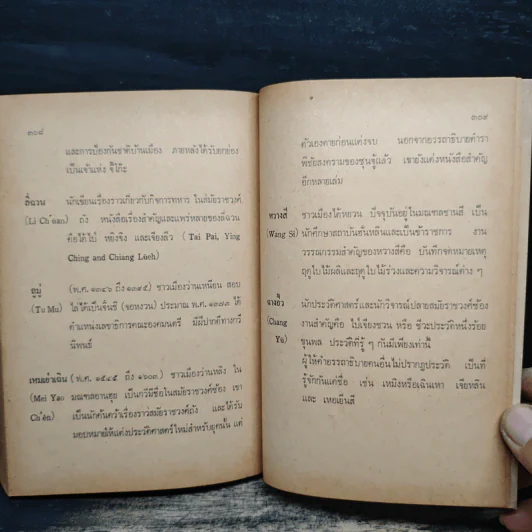 ๓๐๘
และการป้องกันชาติบ้านเมือง ภายหลังได้รับยกย่อง
เป็นเจ้าแห่ง จี้โก๊ะ
ลี่ฉวน นักเขียนเรื่องราวเกี่ยวกับกิจการทหาร ในสมัยราชวงศ์
(Li Ch'üan) ถัง หนังสือเรื่องสำคัญและแพร่หลายของลี่ฉวน
คือไต้ไป๋ หยังจิง และเจียงลิ่ว (Tai Pai, Ying
Ching and Chiang Lüeh)
ตูมู่ (พ.ศ. ๑๓๔๖ ถึง ๑๓๙๕) ชาวเมืองว่านเหนียน สอบ
(Tu Mu) ไล่ได้เป็นจิ้นซื่อ (จอหงวน) ประมาณ พ.ศ. ๑๓๗๓ ได้
ตำแหน่งเลขาธิการคณะองคมนตรี มีฝีปากดีทางกวี
นิพนธ์
เหมยเย่าเฉิน (พ.ศ. ๑๕๔๕ ถึง ๑๖๐๓) ชาวเมืองว่านหลิง ใน
(Mei Yao มณฑลอานฮุย เป็นกวีมีชื่อในสมัยราชวงศ์ซ้อง เขา
Ch'en) เป็นนักค้นคว้าเรื่องราวสมัยราชวงศ์ถัง และได้รับ
มอบหมายให้แต่งประวัติศาสตร์ใหม่สำหรับยุคนั้น แต่
๓๐๙
ตัวเองตายก่อนแต่งจบ นอกจากอรรถาธิบายตำรา
พิชัยสงครามของซุ่นจู้แล้ว เขายังแต่งหนังสือสำคัญ
อีกหลายเล่ม
หวางสี ชาวเมืองไต้หยวน ปัจจุบันอยู่ในมณฑลซานสี เป็น
(Wang Si) นักศึกษาสถาบันฮั่นหลินและเป็นข้าราชการ งาน
วรรณกรรมสำคัญของหวางสีคือ บันทึกจดหมายเหตุ
ฤดูใบไม้ผลิและฤดูใบไม้ร่วงและความวิจารณ์ต่าง ๆ
จางยู่ นักประวัติศาสตร์และนักวิจารณ์ปลายสมัยราชวงศ์ซ้อง
(Chang งานสำคัญคือ ไป่เจียงชวน หรือ ชีวะประวัติหนึ่งร้อย
Yü) ขุนพล ประวัติที่รู้ ๆ กันมีเพียงเท่านี้
ผู้ให้คำอรรถาธิบายคนอื่นไม่ปรากฏประวัติ เป็นที่
รู้จักกันแต่ชื่อ เช่น เหมิงหรือเฉินเหา เจียหลิน
และ เหอเยินสี